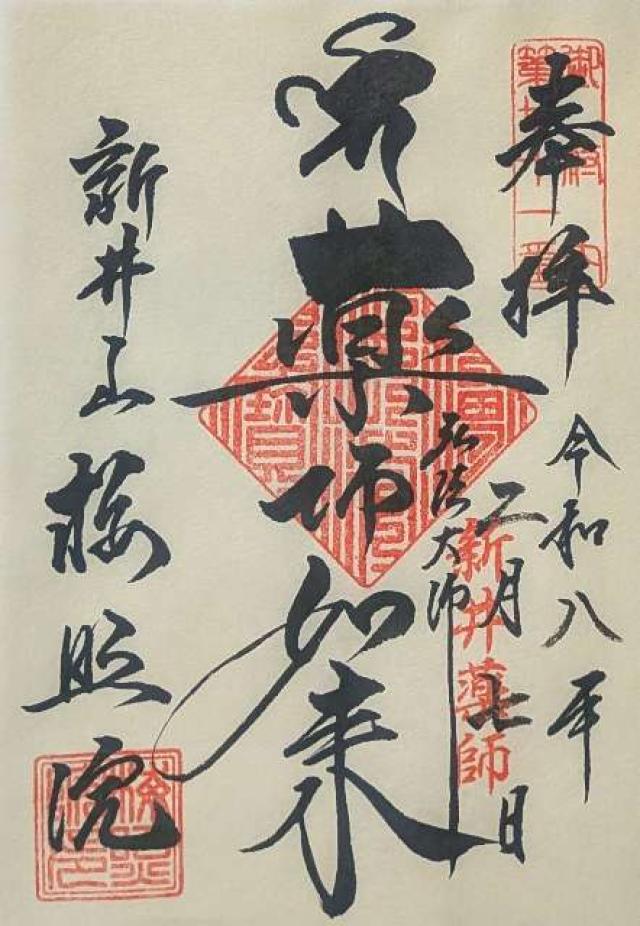 奉拝
令和八年
二月七日
新井薬師
弘法大師
薬師如来
新井山梅照院